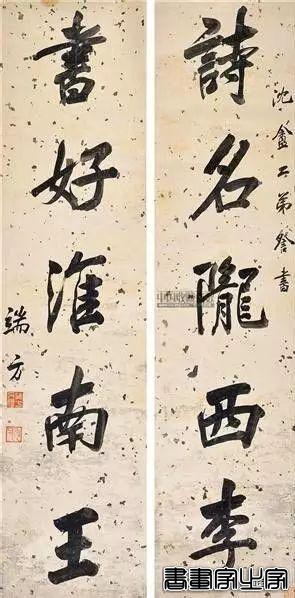 沈盦弟詧書
詩名隴西李
書好淮南王
端方
書畫家之家